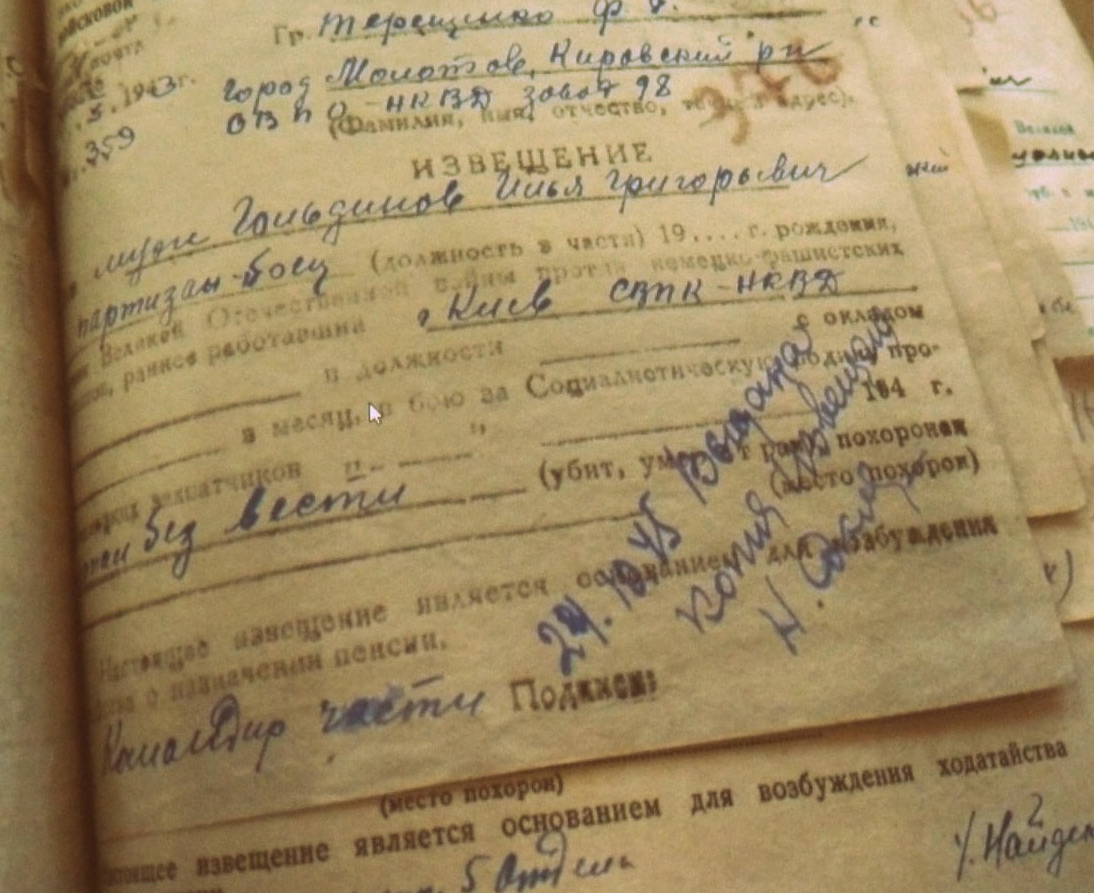 Гр. Терещенко Ф.
1943г.
Город Молотов, Кировский р-н
359
ОВПО-НКВД завод 98
(Фамилия, имя, отчество, адрес).
346
ИЗВЕЩЕНИЕ
муж Гольдинов Илья Григорьевич
партизан-боец (должность в части) 19.... г. рождения,
Великой Отечественной войны против немецко-фашистских
ранее работавший г Киев СВПК-НКВД
в должности с окладом
в месяц, в бою за Социалистическую родину про-
194 г.
(убит, похоронен
без вести (место похорон)
Настоящее извещение является основанием для возбуждения
о назначении пенсии.
Командир части Подпись:
24.10.45 Выдана
копия извещения
Н.
(место похорон)
извещение является основанием для возбуждения ходатайства
5 Отдель
У. Найден